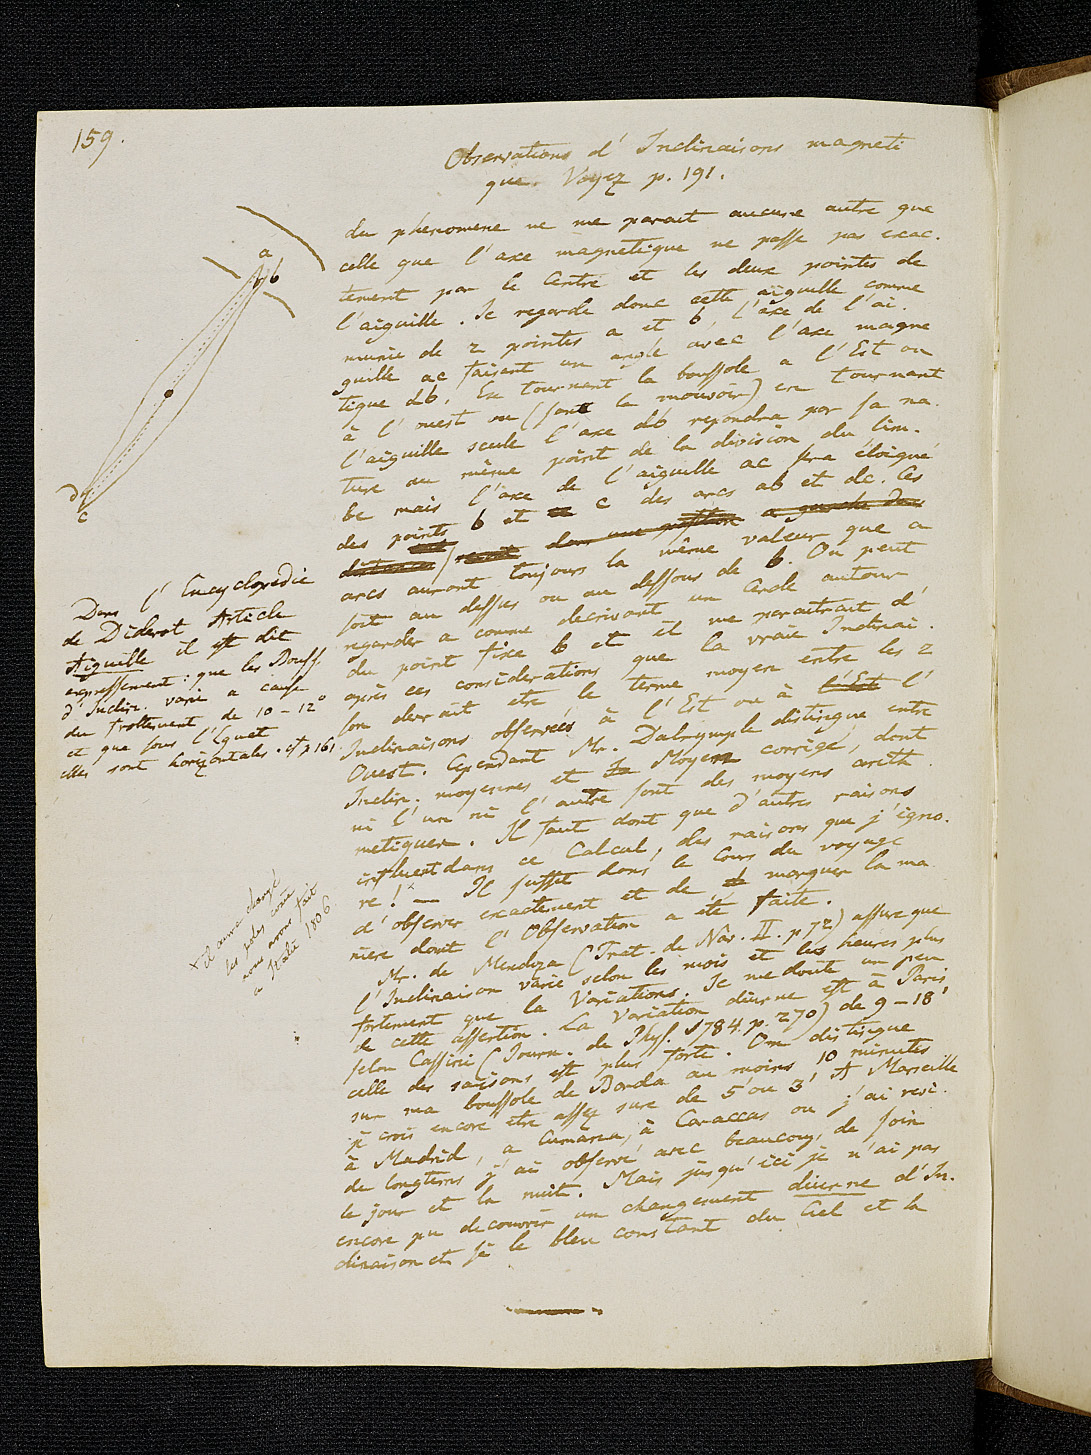 159.
Observations d'Inclinaisons magneti
que. Voyez p. 191.
du phenomene ne me parait aucune autre que
celle que l'axe magnetique ne passe pas exac-
tement par le Centre et les deux pointes de
l'aiguille. Je regarde donc cette aiguille comme
munie de 2 pointes a et b, l'axe de l'ai-
guille ac faisant un angle avec l'axe magne
tique db. En tournant la boussole a l'Est ou
à l'ouest ou (sans la mouvoir) en tournant
l'aiguille seule l'axe db repondra par sa na-
ture au même point de la division du lim-
be mais l'axe de l'aiguille ac sera éloigné
des points b et c des arcs ab et dc. Ces
arcs auront toujours la même valeur que a
soit au dessus ou au dessous de b. On peut
regarder a comme decrivant un Cercle autour
du point fixe b et il me paraitrait d'
après ces considerations que la vraie Inclinai-
son devrait etre le terme moyen entre les 2
Inclinaisons observées à l'Est ou à l'Est l'
Ouest. Cependant Mr. Dalrymple distingue entre
Inclin. moyennes et Moyen corrigé, dont
ni l'un ni l'autre sont des moyens arith
metiques. Il faut dont que d'autres raisons
influent dans ce Calcul, des raisons que j'igno-
re! — Il suffit dans le Cours du voyage
d'observer exactement et de marquer la ma
niere dont l'Observation a été faite.
Mr. de Mendoza (Trat. de Nav. II. p 72) assure que
l'Inclinaison varie selon les mois et les heures plus
fortement que la Variations. Je me doute un peu
de cette assertion. La Variation diurne est à Paris
selon Cassini (Journ. de Phys. 1784. p. 270) de 9–18'
celle des saisons est plus forte. On distingue
sur ma boussole de Borda au moins 10 minutes
je crois encore etre assez sure de 5' ou 3' A Marseille
à Madrid, a Cumana, à Caraccas ou j'ai resi-
de longtems j'ai observé avec beaucoup de soin
le jour et la nuit. Mais jusqu'ici je n'ai pas
encore pu decouvrir un changement diurne d'In-
clinaison et si le bleu constant du Ciel et la
a
b
d
c
Dans l'Encyclopedie
de Diderot Article
Aiguille il est dit
expressement: que les Bouss.
d'Inclin. varie a cause
du frottement de 10–12°
et que sous l'Equat
elles sont horizontales. cf p 161.
+ il aurait changé
les poles comme
nous avons fait
a Italie 1806